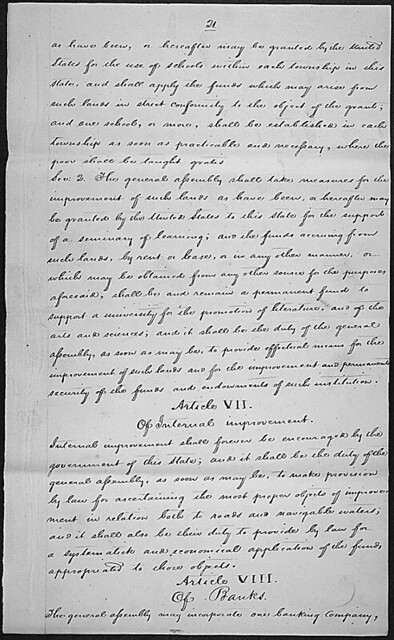 21
as have been, or hereafter may be granted by the United
States for the use of schools within each township in this
State, and shall apply the funds which may arise from
such lands in strict conformity to the object of the grant;
and one school, or more, shall be established in each
township as soon as practicable and necessary, where the
poor shall be taught gratis
Sec: 2. The general assembly shall take measures for the
improvement of such lands as have been, or hereafter may
be granted by the United States to this State for the support
of a seminary of learning; and the funds accruing from
such lands, by rent or lease, or in any other manner, or
which may be obtained from any other source for the purposes
aforesaid, shall be and remain a permanent fund to
support a university for the promotion of literature, and of the
arts and sciences; and it shall be the duty of the general
assembly, as soon as may be, to provide effectual means for the
improvement of such lands and for the improvement and permanent
security of the funds and endowments of such institution.
Article VII.
Of Internal improvement.
Internal improvement shall forever be encouraged by the
government of this State; and it shall be the duty of the
general assembly, as soon as may be, to make provision
by law for ascertaining the most proper objects of improve
ment in relation both to roads and navigable waters;
and it shall also be their duty to provide by law for
a systematick and economical application of the funds
appropriated to these objects.
Article VIII.
Of Banks.
The general assembly may incorporate one banking company,